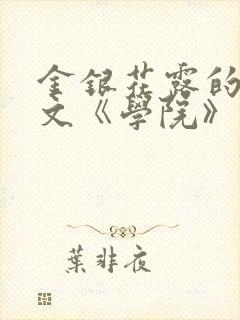 金銀花露的
文《學院》
葉非夜